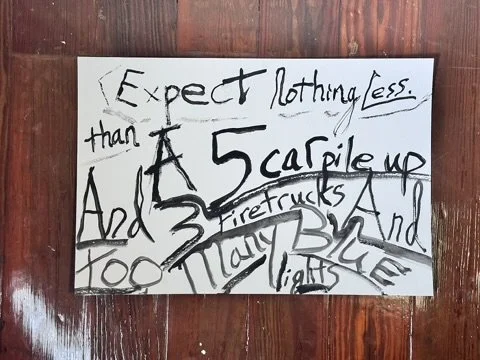 Expect Nothing Less.
than A 5 car pile up
And 3 firetrucks And
Too Many Blue
lights